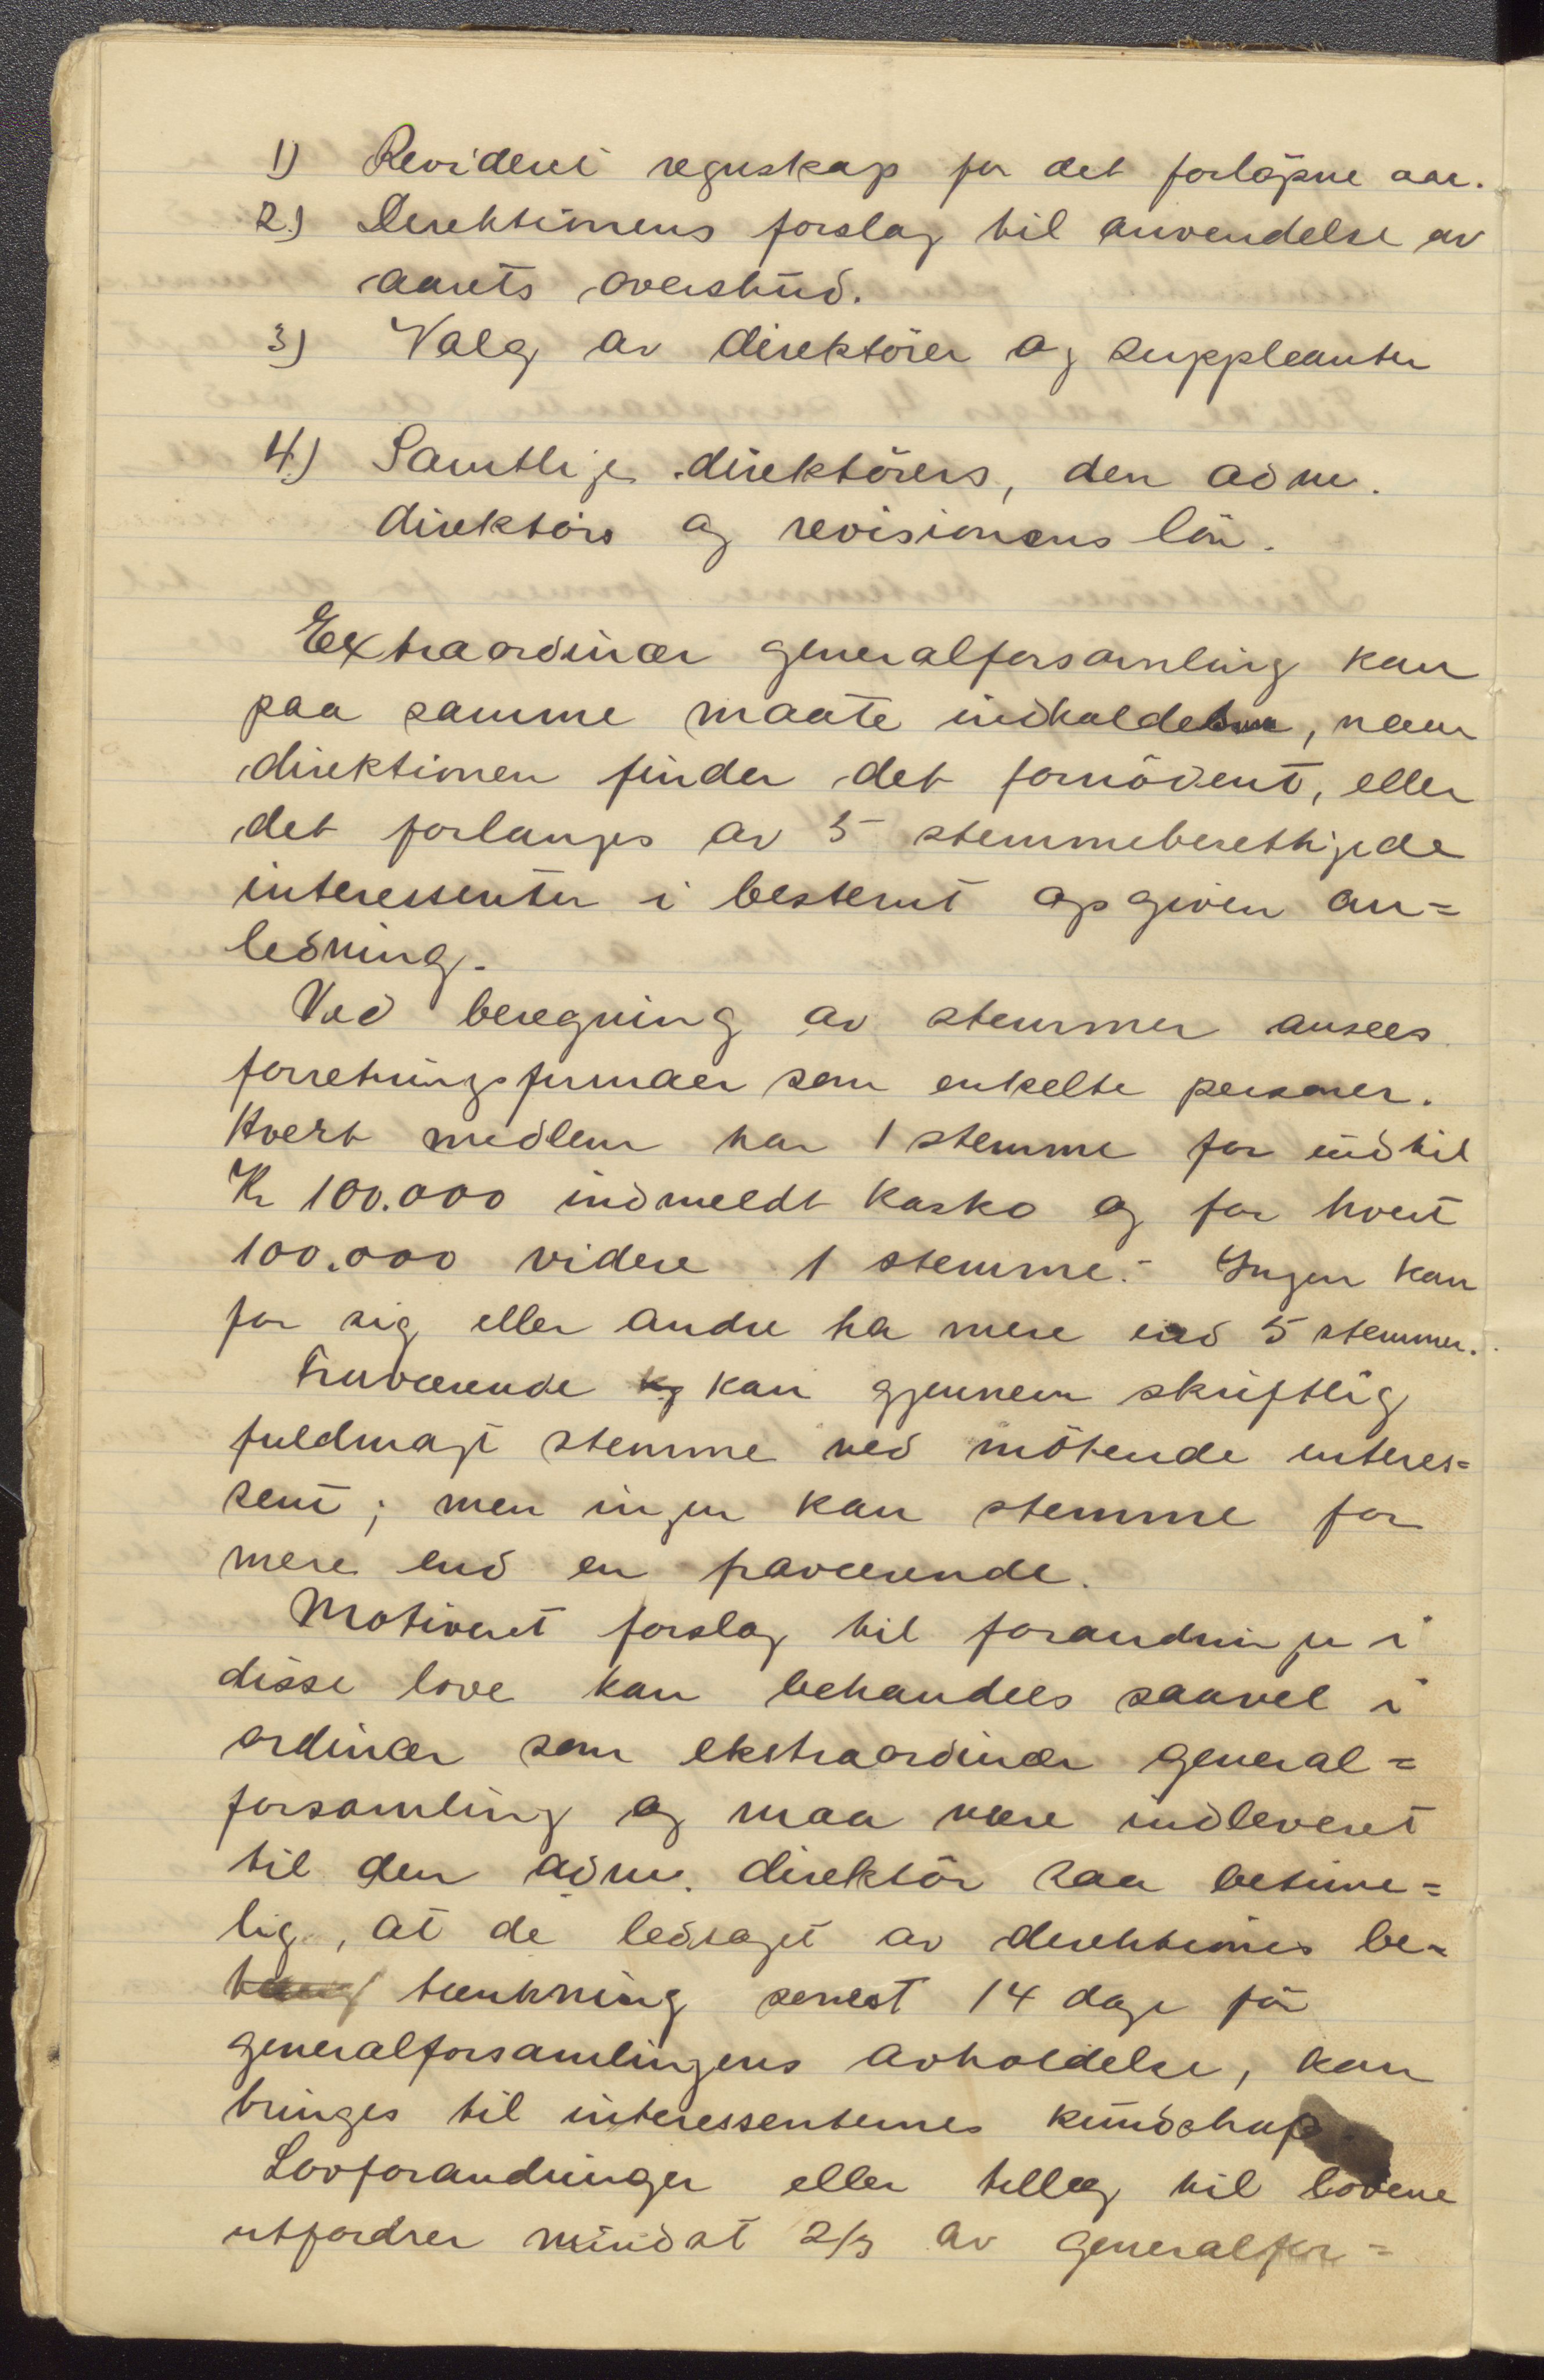 1) Revidert regnskap for det forlöpne aar.
2.) Direktionens forslag til anvendelse av
aarets overskud.
3) Valg av direktörer og suppleanter
4.) Samtlige direktörers, den adm.
direktörs og revisionens lön.
Extraordinær generalforsamling kan
paa samme maate indkaldes, naar
direktionen finder det fornödent, eller
det forlanges av 5 stemmeberettigede
interessenter i bestemt opgiven an=
ledning.
Ved beregning av stemmer ansees
forretningsfirmaer som enkelte personer.
Hvert medlem har 1 stemme for indtil
Kr 100.000 indmeldt kasko og for hvert
100.000 videre 1 stemme.- Ingen kan
for sig eller andre ha mere end 5 stemmer.
Fraværende kan gjennem skriftlig
fuldmagt stemme ved mötende interes=
sent; men ingen kan stemme for
mere end en fraværende.
Motivert forslag til forandringer i
disse love kan behandles saavel i
ordinær som ekstraordinær general=
forsamling og maa være indleveret
til den adm. direktör saa betime=
lig, at de ledsaget av direktiones be=
tænkning senest 14 dage för
generalforsamlingens avholdelse, kan
bringes til interessenternes kundskap.
Lovforandringer eller tillæg til lovene
utfordrer mindst 2/3 av generalfor=